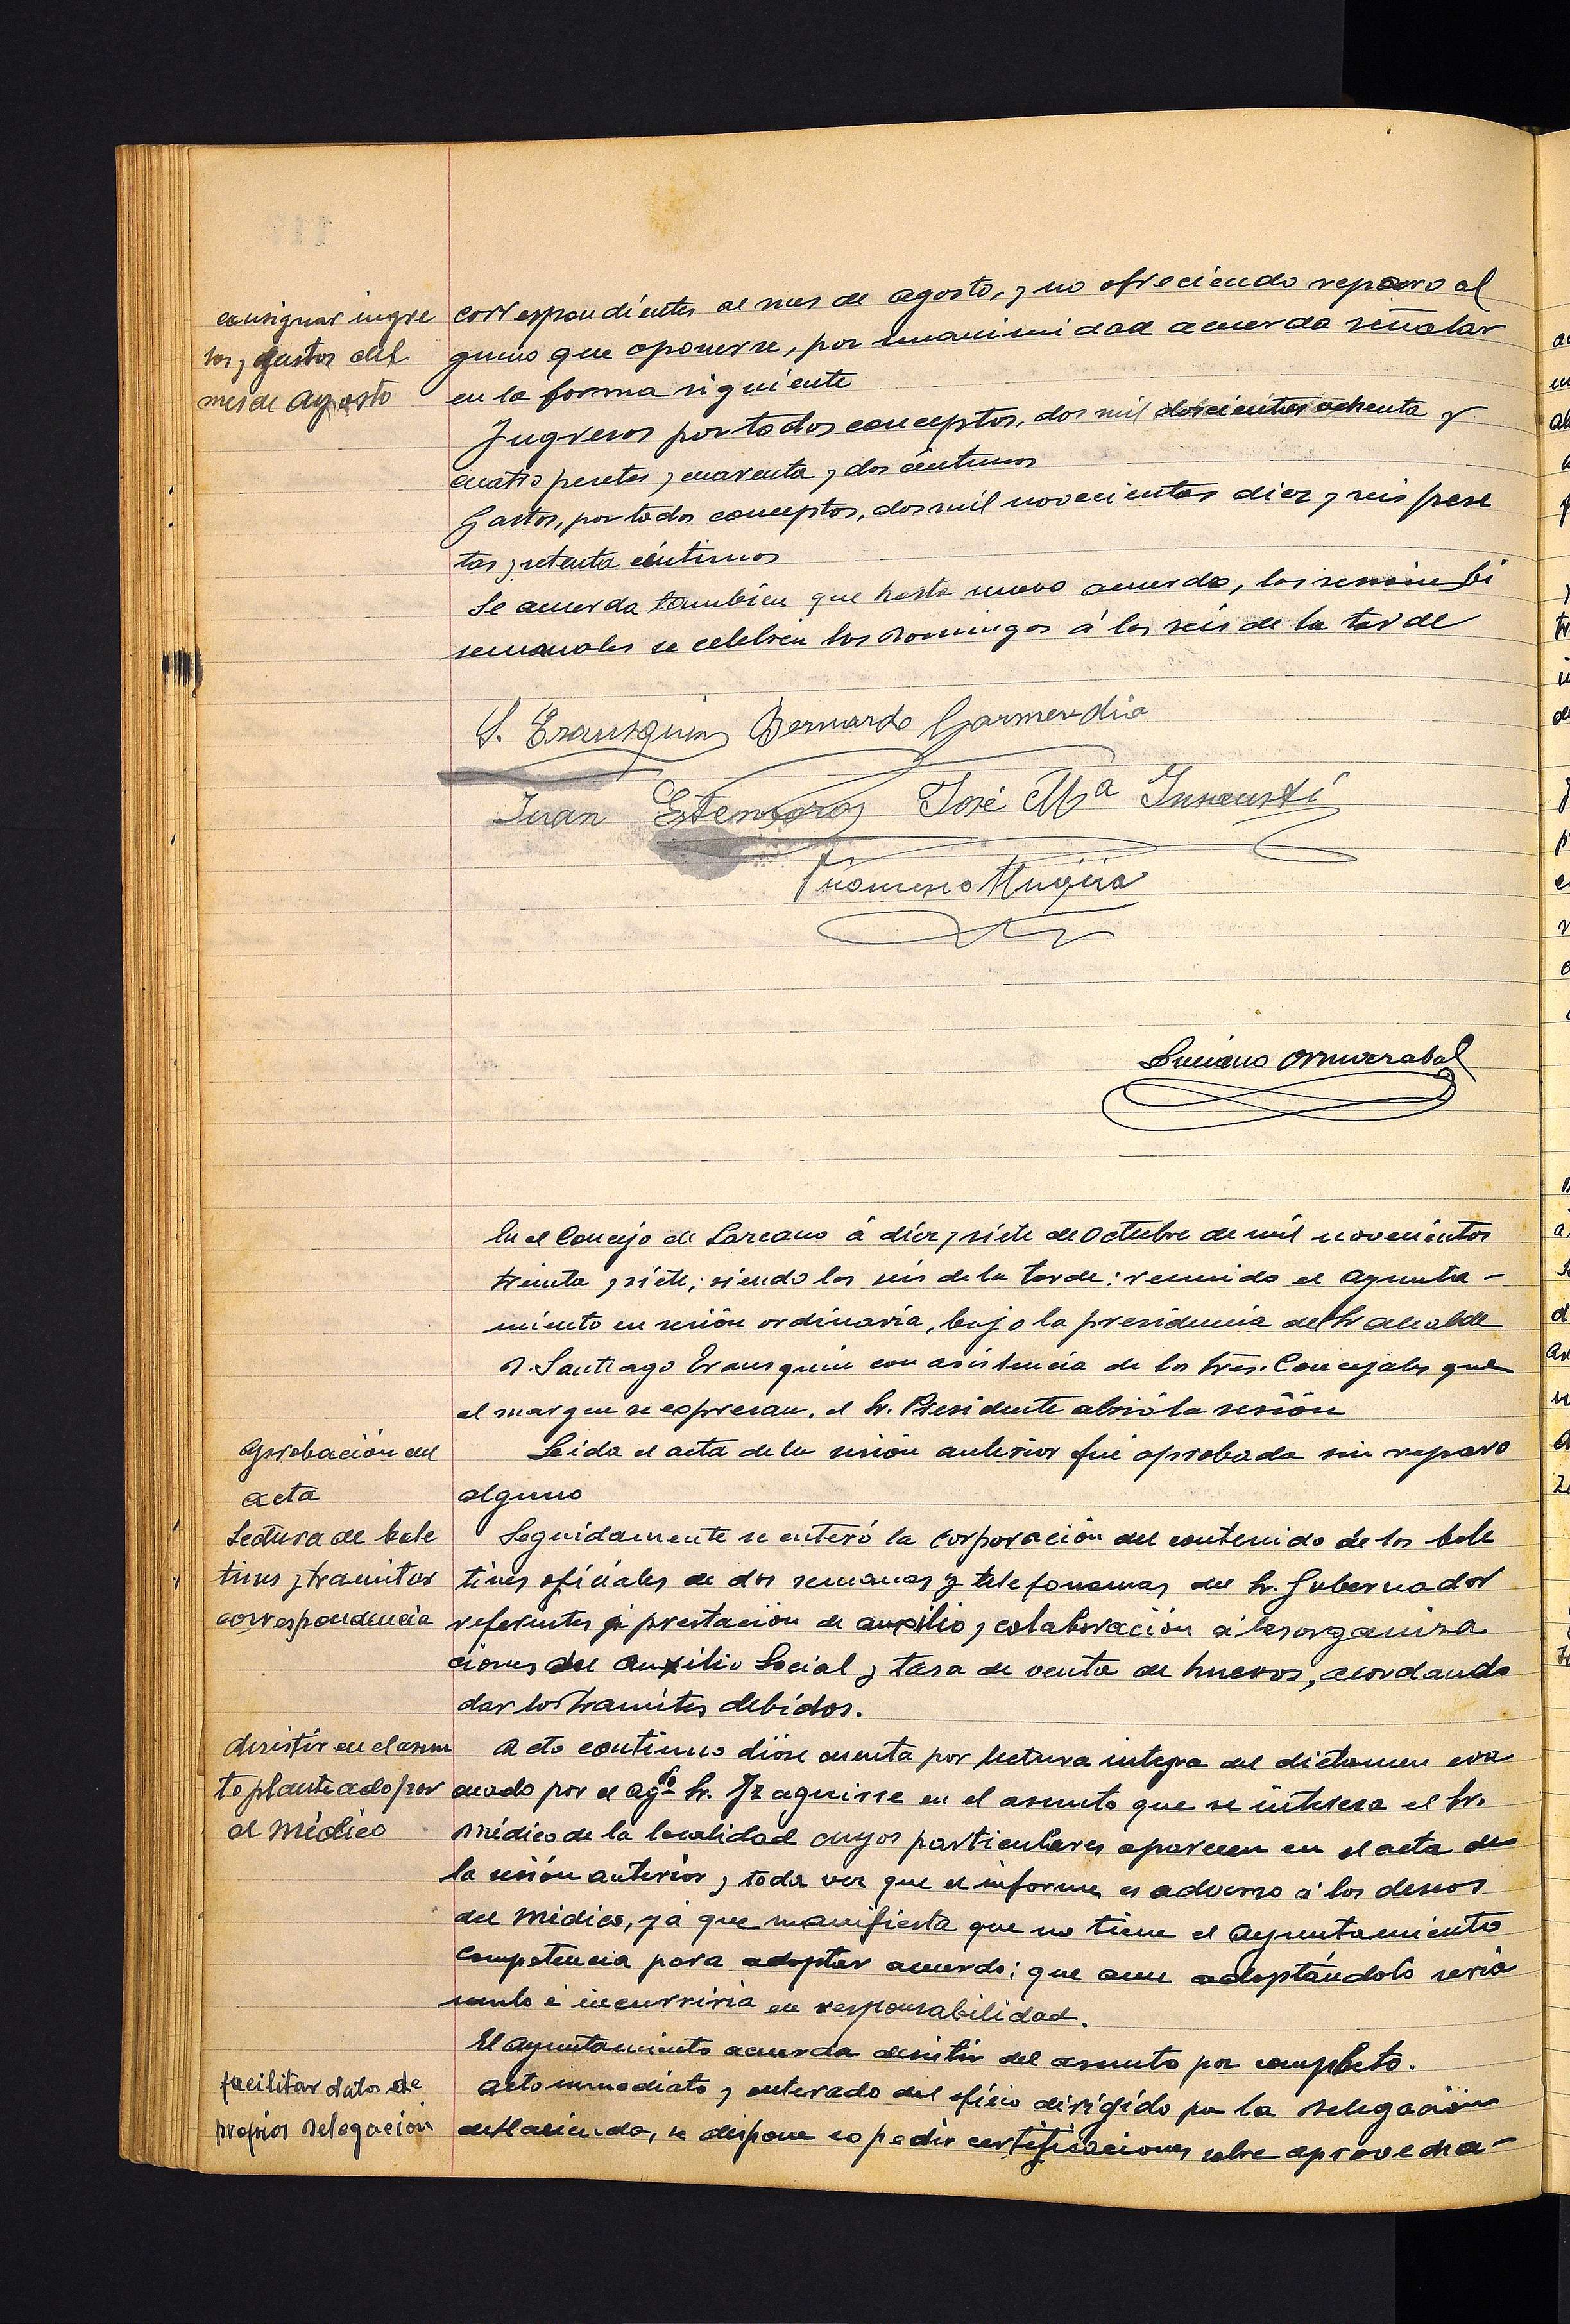 consignar ingre
sos, gastos del
mes de agosto
correspondientes al mes de agosto, y no ofreciendo reparo al
guno que oponerse, por unanimidad acuerda señalar
en la forma siguiente
Ingresos por todos conceptos, dos mil doscientas ochenta y
cuatro pesetas y cuarenta y dos céntimos
Gastos, por todos conceptos, dos mil novecientas diez y seis pese
tas y setenta céntimos
Se acuerda también que hasta nuevo acuerdo, las sesiones bi
semanales se celebren los Domingos á las seis de la tarde
S. Erausquin Bernardo Garmendia
Juan José Mª Insausti
Francisco Mugica
Luciano Ormazabal
En el Concejo de Lazcano á diez y siete de Octubre de mil novecientos
treinta y siete; siendo las seis de la tarde: reunido el Ayunta-
miento en sesión ordinaria, bajo la presidencia del Sr Alcalde
D. Santiago Erausquin con asistencia de los Sres. Concejales que
al margen se expresan, el Sr. Presidente abrió la sesión
Aprobación del
acta
Leida el acta de la sesión anterior fué aprobada sin reparo
alguno
Lectura de bole
tines y tramitar
correspondencia
Seguidamente se enteró la Corporación del contenido de los bole
tines oficiales de dos semanas y telefonemas del Sr. Gobernador
referentes á prestación de auxilio y colaboración á las organiza
ciones del Auxilio Social y tasa de venta de huevos, acordando
dar los tramites debidos.
desistir en el asun
to planteado por
el Médico
Acto continuo dióse cuenta por lectura integra del dictamen eva
cuado por el Agdo Sr. Izaguirre en el asunto que se interesa el Sr.
Médico de la localidad cuyos particulares aparecen en el acta de
la sesión anterior y toda vez que el informe es adverso á los deseos
del Médico, ya que manifiesta que no tiene el Ayuntamiento
Competencia para adoptar acuerdo; que aun adoptándolo seria
nulo é incurriria en responsabilidad.
El Ayuntamiento acuerda desistir del asunto por completo.
facilitar datos de
propios Delegación
Acto inmediato y enterado del oficio dirigido por la Delegación
de Hacienda, se dispone expedir certificaciones sobre aprovecha-